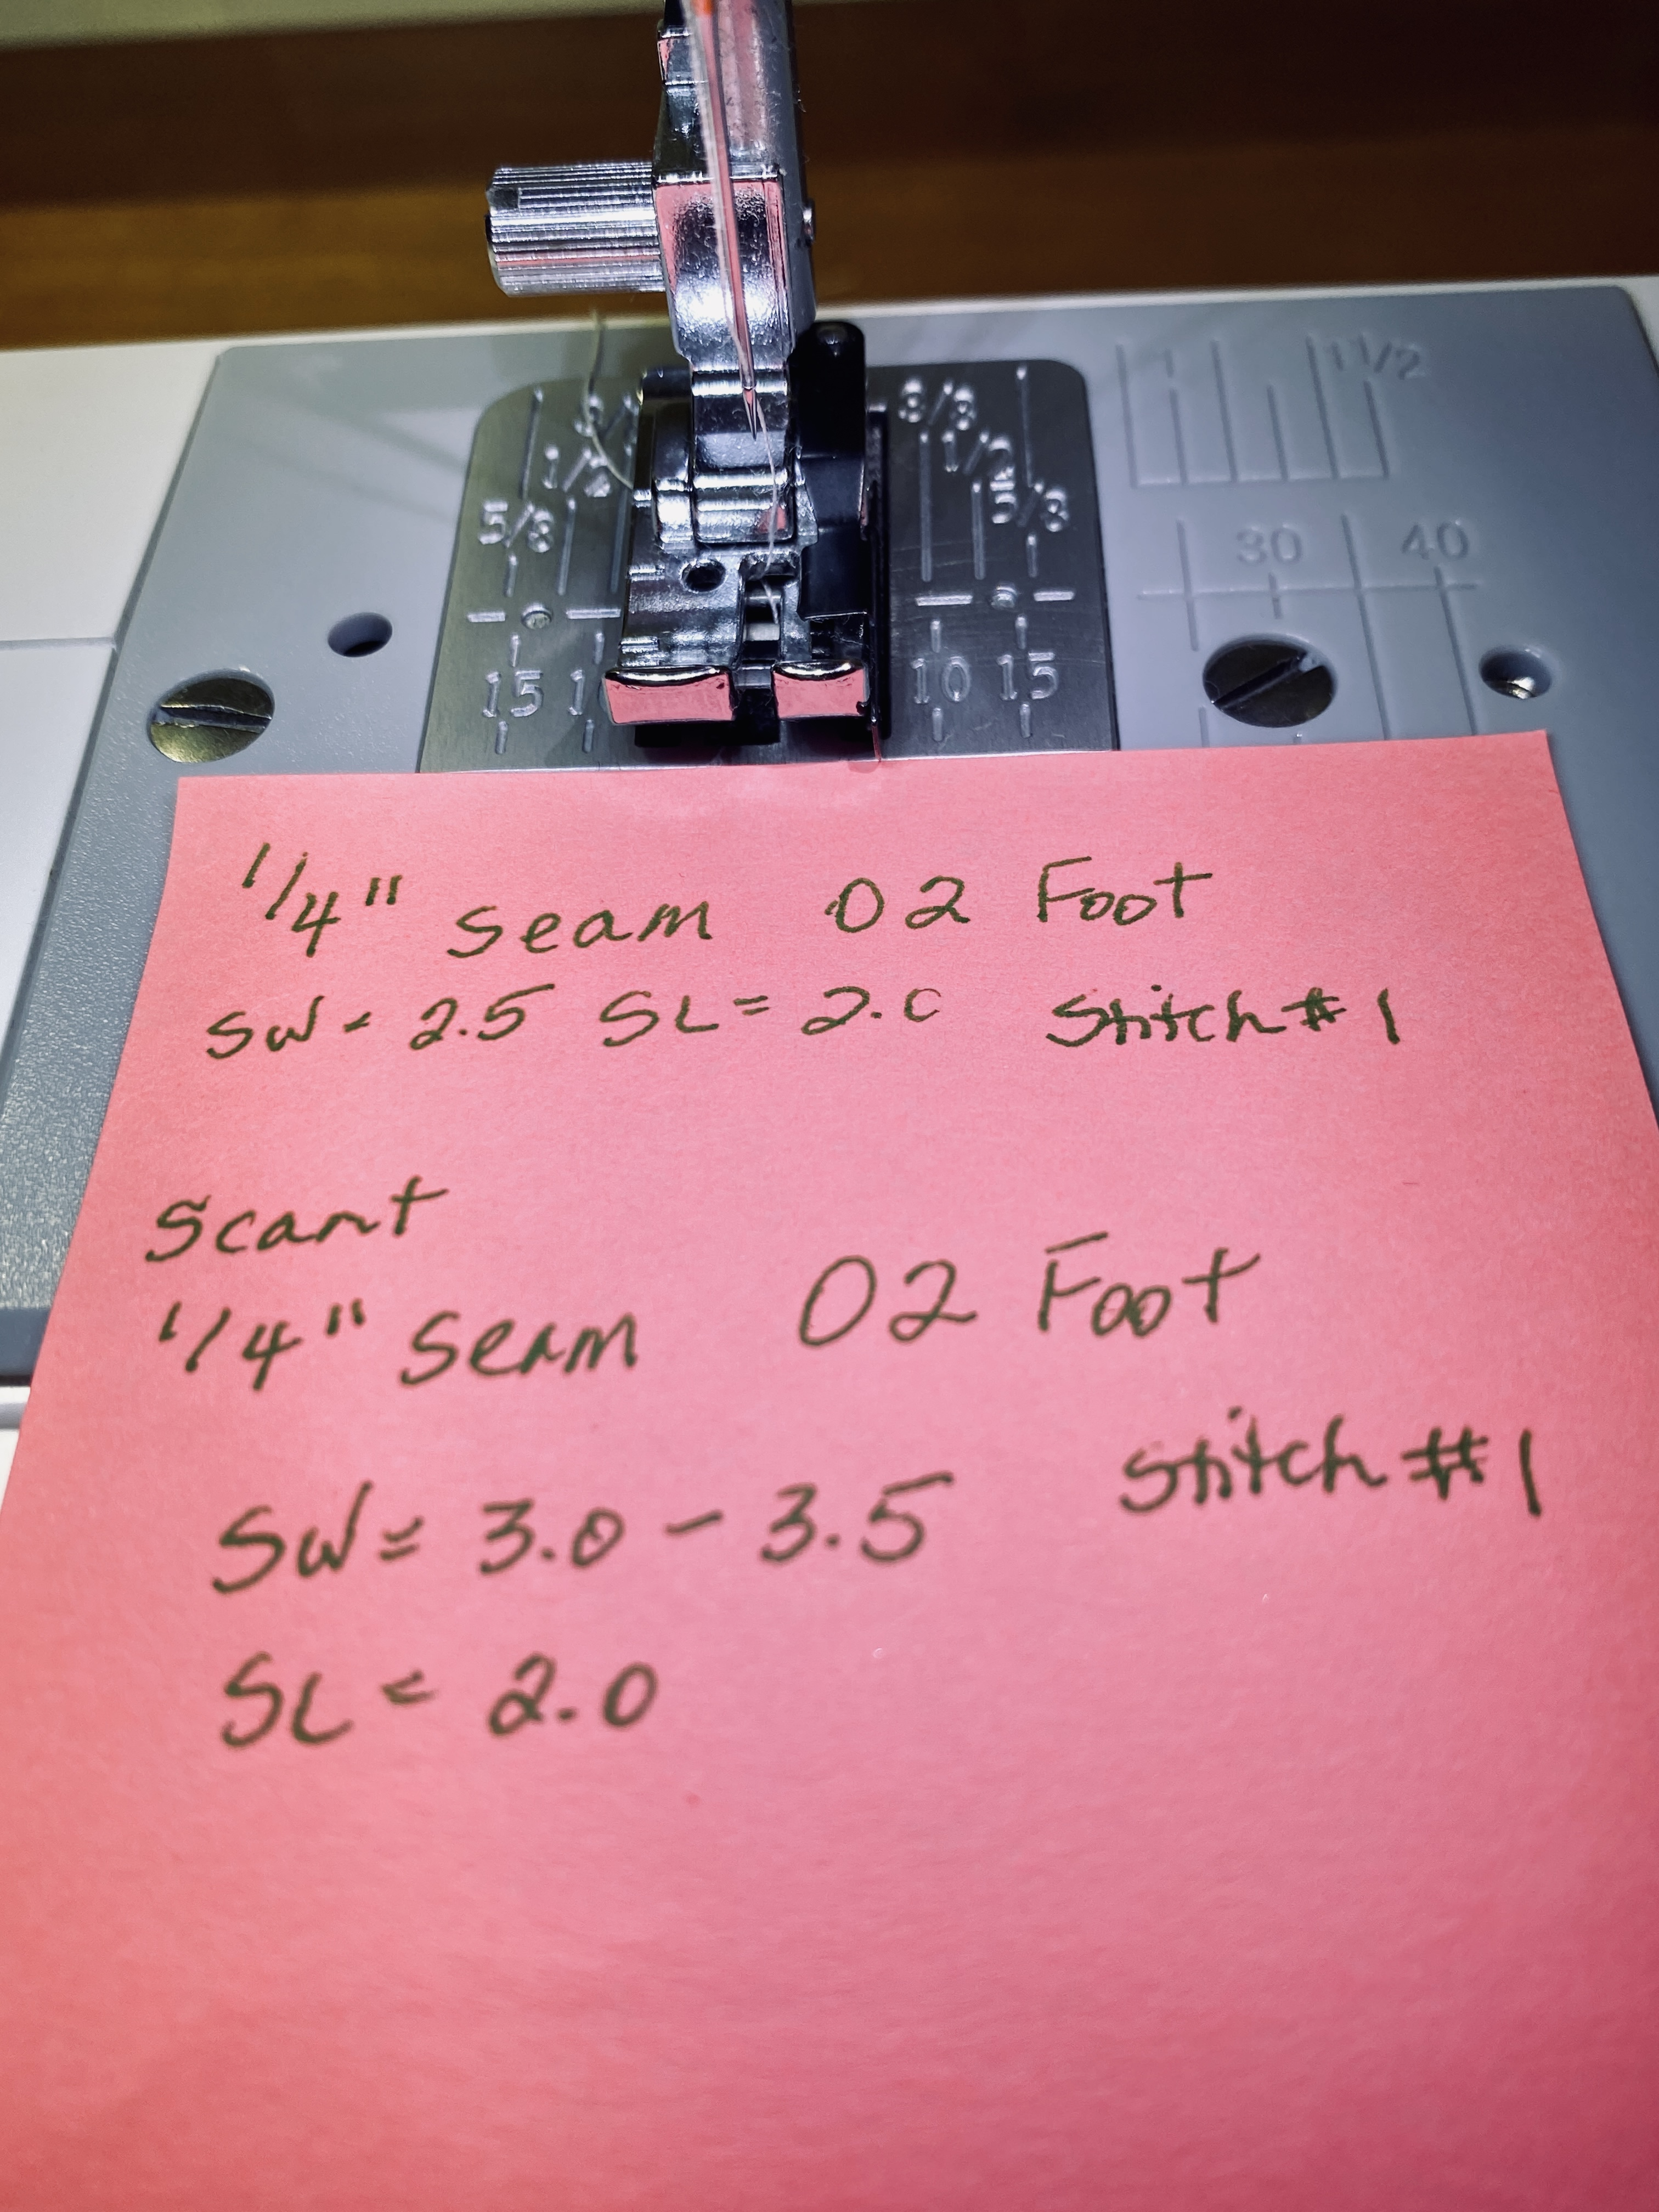 1 1/2
3/8
1/2
5/8
1/2
5/8
30 40
15 1
10 15
1/4" Seam O2 Foot
SW = 2.5 SL = 2.0 Stitch #1
Scant
1/4" Seam O2 Foot
Stitch #1
SW = 3.0 - 3.5
SL = 2.0